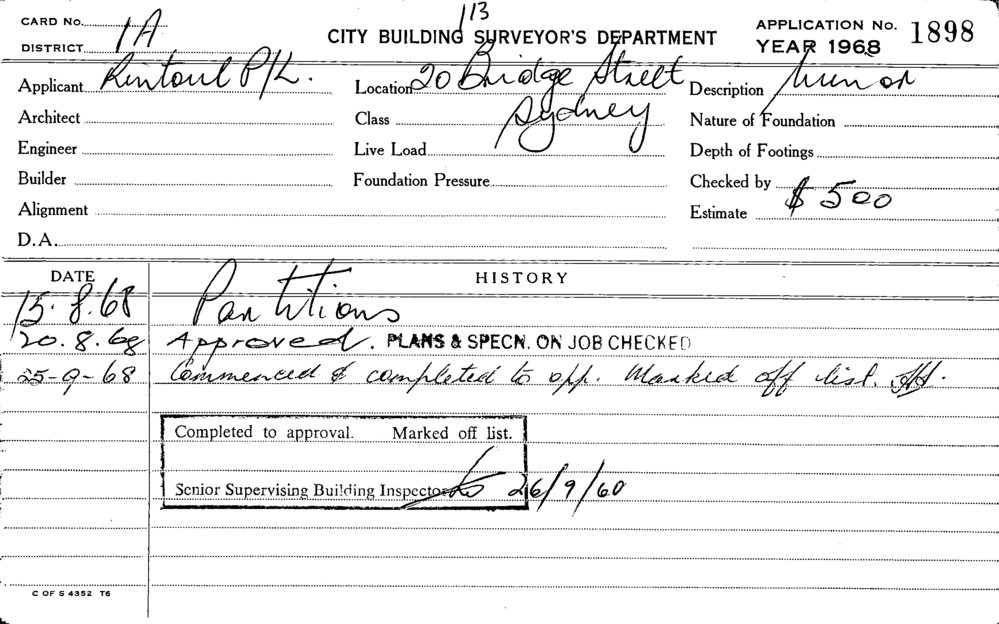 113
CARD No.
CITY BUILDING SURVEYOR'S DEPARTMENT
APPLICATION No. 1898
DISTRICT 1A
YEAR 1968
Applicant Rintoul P/L.
Location 20 Bridge Street
Sydney
Description Minor
Architect
Class
Nature of Foundation
Engineer
Live Load
Depth of Footings
Builder
Foundation Pressure
Checked by
Alignment
Estimate $500
D.A.
DATE
HISTORY
15.8.68 Partitions
20.8.68 Approved. PLANS & SPECN. ON JOB CHECKED
25-9-68 Commenced & completed to app. Marked off list.
Completed to approval. Marked off list.
Senior Supervising Building Inspector 26/9/68
C OF S 4352 T6